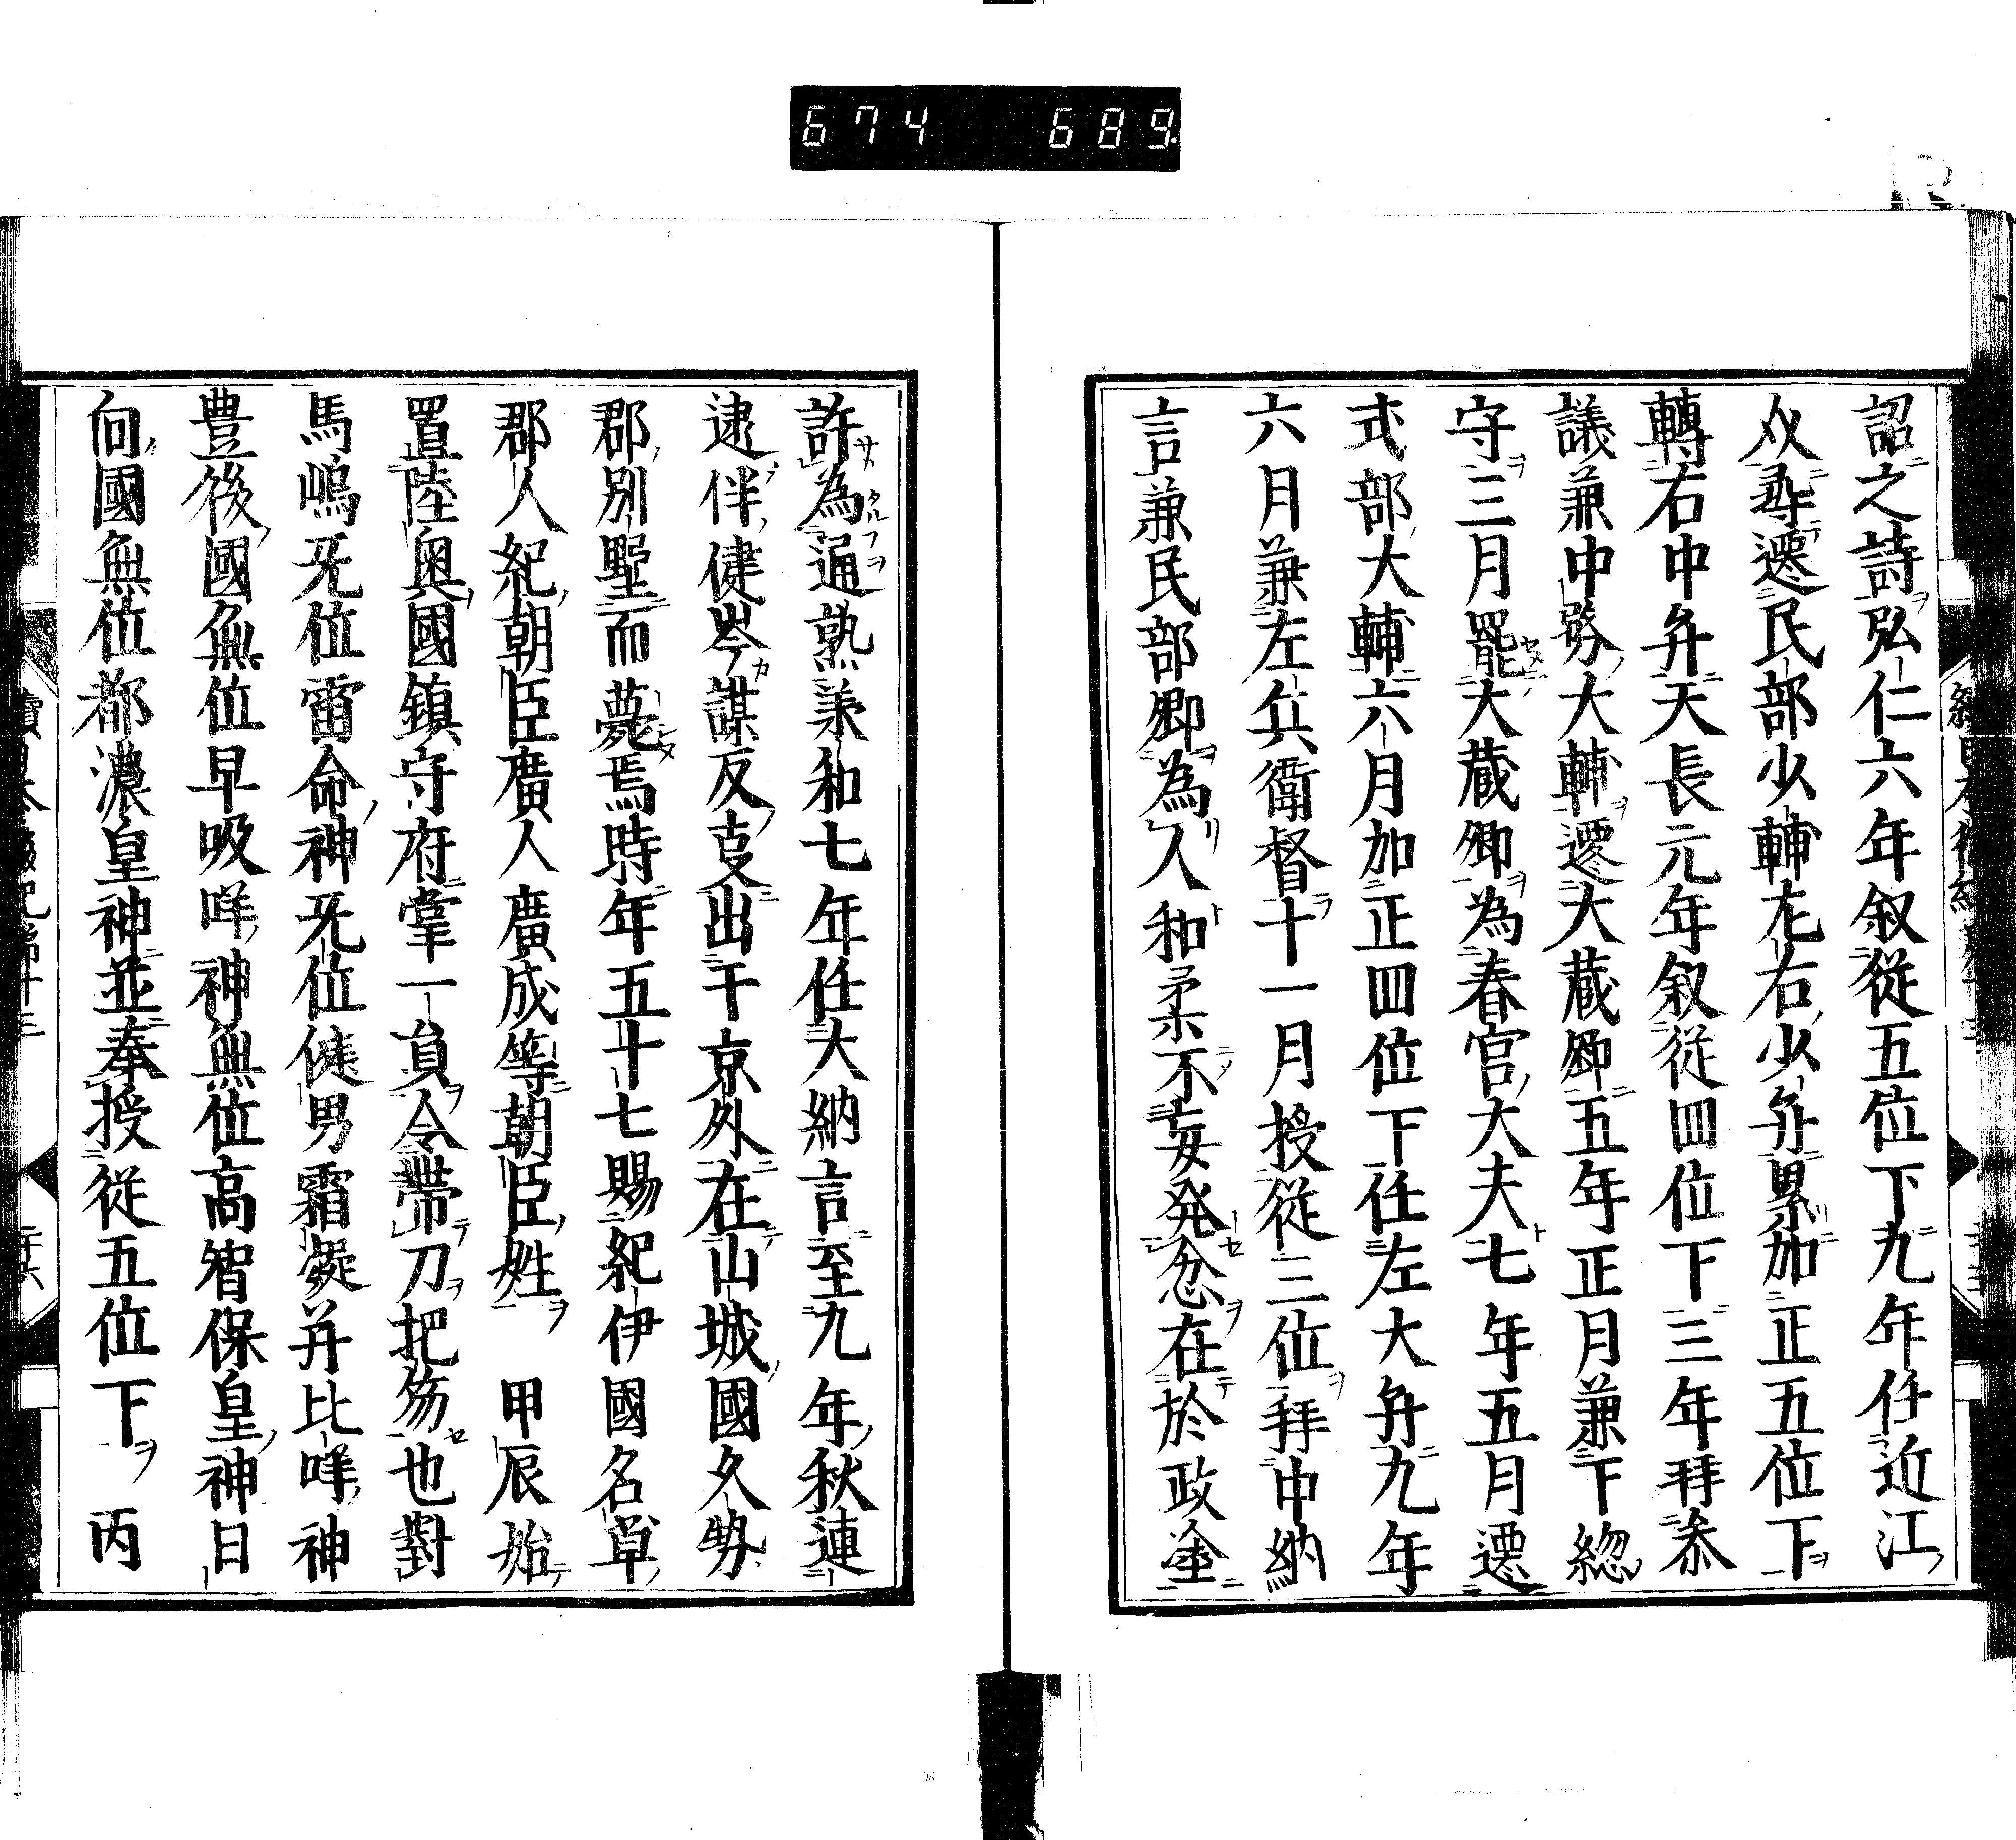 674 689
詔之詩弘仁六年叙従五位下九年任近江
介尋遷民部少輔左右少弁累加正五位下
轉右中弁天長元年叙従四位下三年拜参
議兼中務大輔遷大蔵卿五年正月兼下総
守三月罷大蔵卿為春宮大夫七年五月遷
式部大輔六月加正四位下任左大弁九年
六月兼左兵衛督十一月授従三位拜中納
言兼民部卿為人和柔不妄発忿在於政塗
許為通熟承和七年任大納言至九年秋連
逮伴健岑謀反支出于京外在山城國久勢
郡別墅而薨焉時年五十七賜紀伊國名草
郡人紀朝臣廣人廣成等朝臣姓　甲辰始
置陸奥國鎮守府掌一員令帯刀把笏也對
馬嶋旡位雷命神旡位健男霜凝并比咩神
豊後國無位早吸咩神無位高智保皇神日
向國無位都濃皇神並奉授従五位下　丙